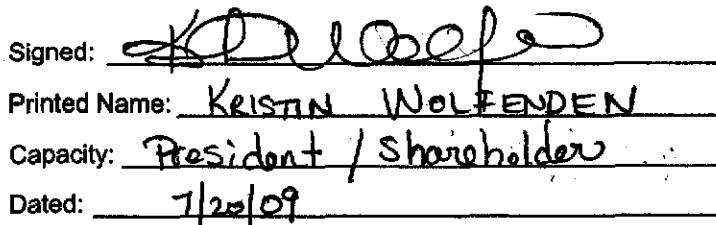 Signed:
Printed Name: KRISTIN WOLFENDEN
Capacity: President / Shareholder
Dated: 7/20/09